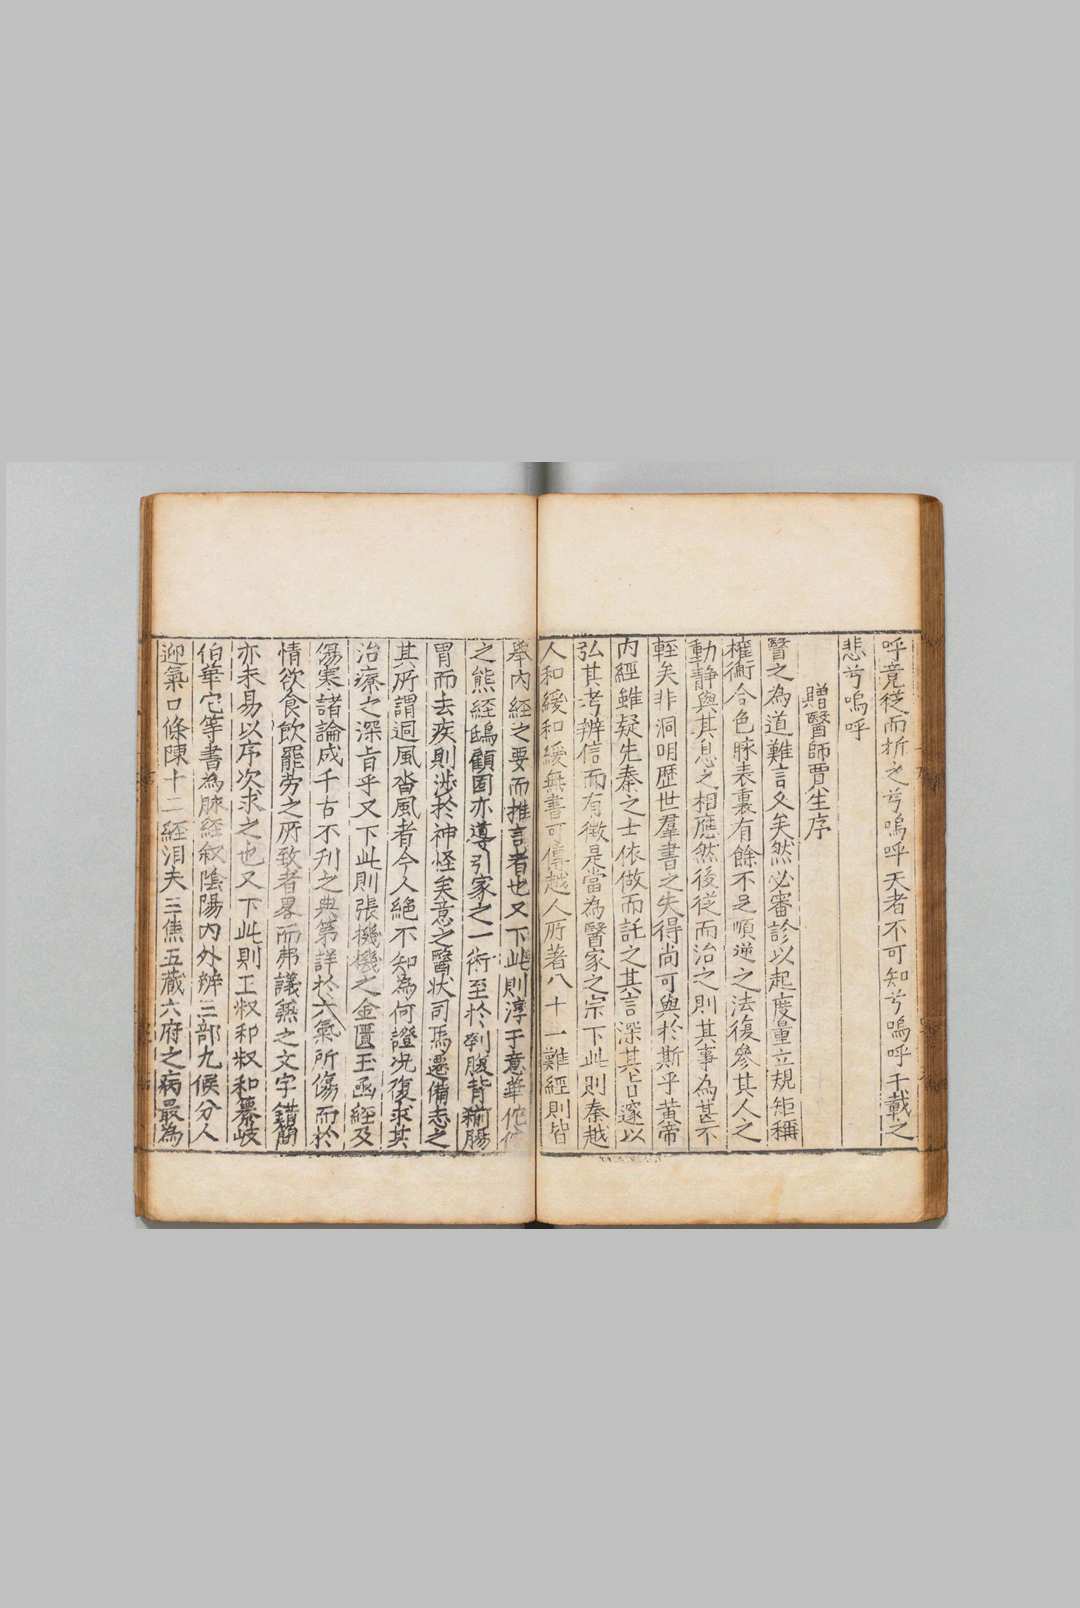 呼竟従而析之兮嗚呼天者不可知兮嗚呼千載之
悲兮嗚呼
贈醫師賈生序
醫之為道難言久矣然必審診以起度量立規矩稱
權衡合色脉表裏有餘不足順逆之法復參其人之
動静與其息之相應然後従而治之則其事為甚不
輕矣非洞明歴世羣書之失得尚可與於斯乎黄帝
内經雖疑先秦之士依倣而託之其言深其占邃以
弘其考辨信而有徴是當為醫家之宗下此則秦越
人和緩和緩無書可傳越人所著八十一難經則皆
舉内經之要而推言者也又下此則淳于意華佗佗
之熊經鴟顧固亦導引家之一術至於刳腹背湔腸
胃而去疾則渉於神怪矣意之醫状司馬遷備志之
其所謂迵風沓風者今人絶不知為何證况復求其
治療之深旨乎又下此則張機機之金匱玉函經及
傷寒諸論成千古不刊之典第詳於六氣所傷而於
情欲食飲罷勞之所致者畧而弗議無之文字錯簡
亦未易以序次求之也又下此則王叔和叔和纂岐
伯華佗等書為脉經叙陰陽内外辨三部九候分人
迎氣口條陳十二經洎夫三焦五蔵六府之病最為